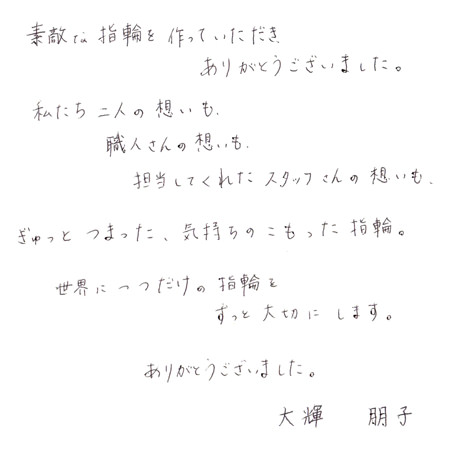 素敵な指輪を作っていただき
ありがとうございました。
私たち二人の想いも、
職人さんの想いも、
担当してくれたスタッフさんの想いも、
ぎゅっとつまった、気持ちのこもった指輪。
世界に一つだけの指輪を
ずっと大切にします。
ありがとうございました。
大輝 朋子